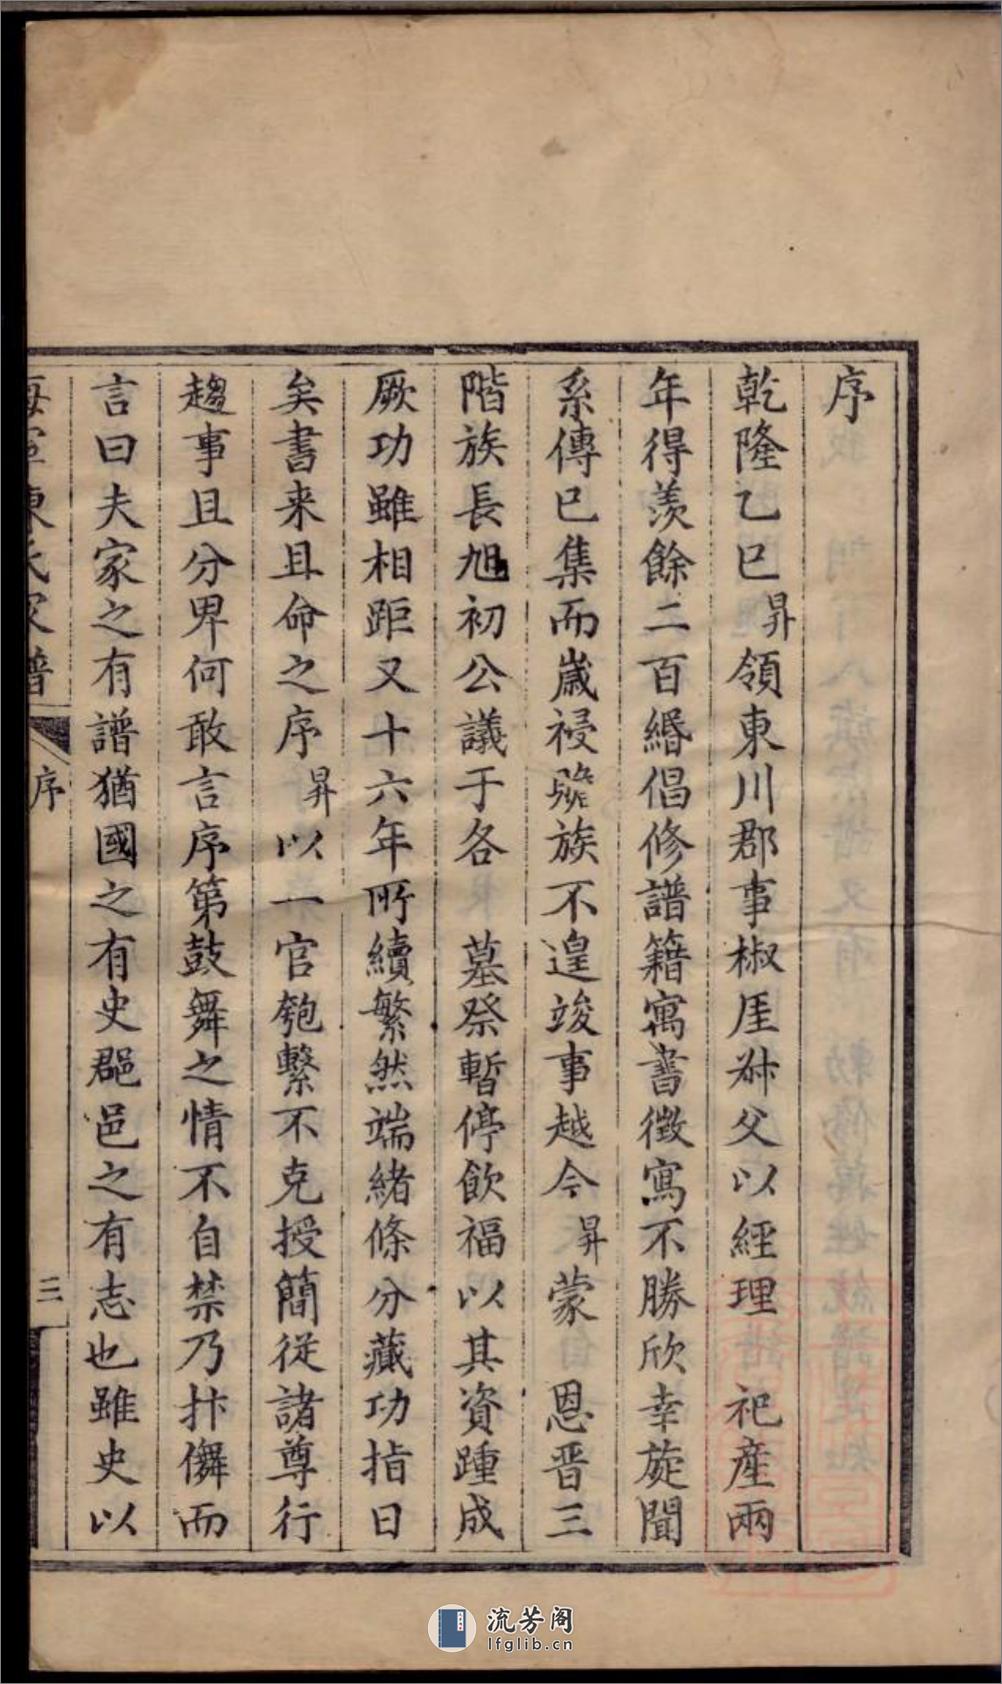 序
乾隆乙巳昇領東川郡事椒厓叔父以經理 祀產兩
年得羨餘二百緡倡修譜籍寓書徵寫不勝欣幸旋聞
系傳已集而歲祲贍族不遑竣事越今昇蒙 恩晋三
階族長旭初公議于各 墓祭暫停飲福以其資踵成
厥功雖相距又十六年所續繁然端緒條分藏功指日
矣書来且命之序昇以一官匏繫不克授簡従諸尊行
趨事且分卑何敢言序第鼓舞之情不自禁乃抃儛而
言曰夫家之有譜猶國之有史郡邑之有志也雖史以
海寧陳氏家譜 序 三
流芳阁
lfglib.cn